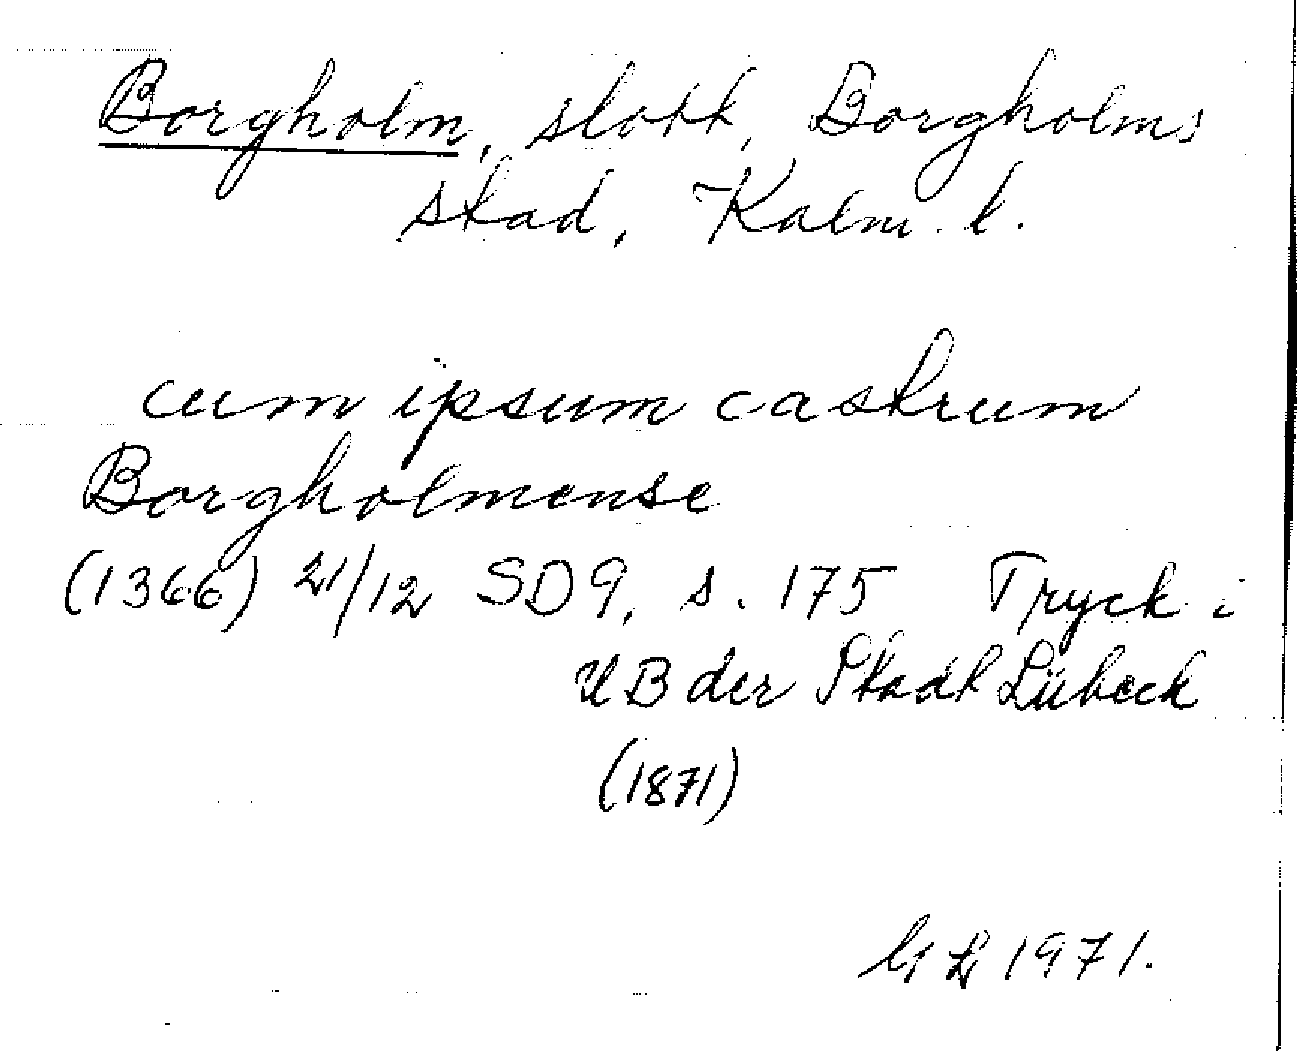 Borgholm, slott, Borgholms
stad, Kalm. l.
cum ipsum castrum
Borgholmense
(1366) 21/12 SD9, s. 175 Tryck i
UB der Stadt Lübeck
(1871)
1971.